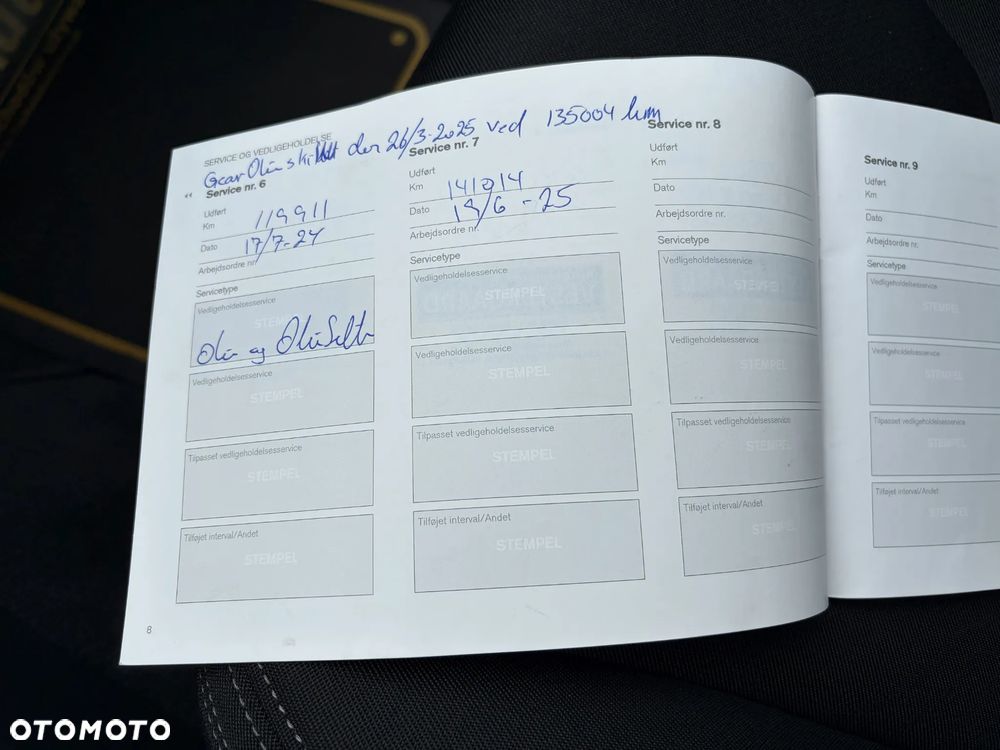 SERVICE OG VEDLIGEHOLDELSE
Gear Olie skiftet den 26/3-2025 ved 135004 km
Service nr. 6
Udført
Km 119911
Dato 17/7-24
Arbejdsordre nr.
Servicetype
Vedligeholdelsesservice
STEMPEL
Olie og Oliefilter
Vedligeholdelsesservice
STEMPEL
Tilpasset vedligeholdelsesservice
STEMPEL
Tilføjet interval/Andet
STEMPEL
8
Service nr. 7
Udført
Km 141014
Dato 19/6-25
Arbejdsordre nr.
Servicetype
Vedligeholdelsesservice
STEMPEL
Vedligeholdelsesservice
STEMPEL
Tilpasset vedligeholdelsesservice
STEMPEL
Tilføjet interval/Andet
STEMPEL
Service nr. 8
Udført
Km
Dato
Arbejdsordre nr.
Servicetype
Vedligeholdelsesservice
STEMPEL
Vedligeholdelsesservice
STEMPEL
Tilpasset vedligeholdelsesservice
STEMPEL
Tilføjet interval/Andet
STEMPEL
Service nr. 9
Udført
Km
Dato
Arbejdsordre nr.
Servicetype
Vedligeholdelsesservice
STEMPEL
Vedligeholdelsesservice
STEMPEL
Tilpasset vedligeholdelsesservice
STEMPEL
Tilføjet interval/Andet
STEMPEL
OTOMOTO